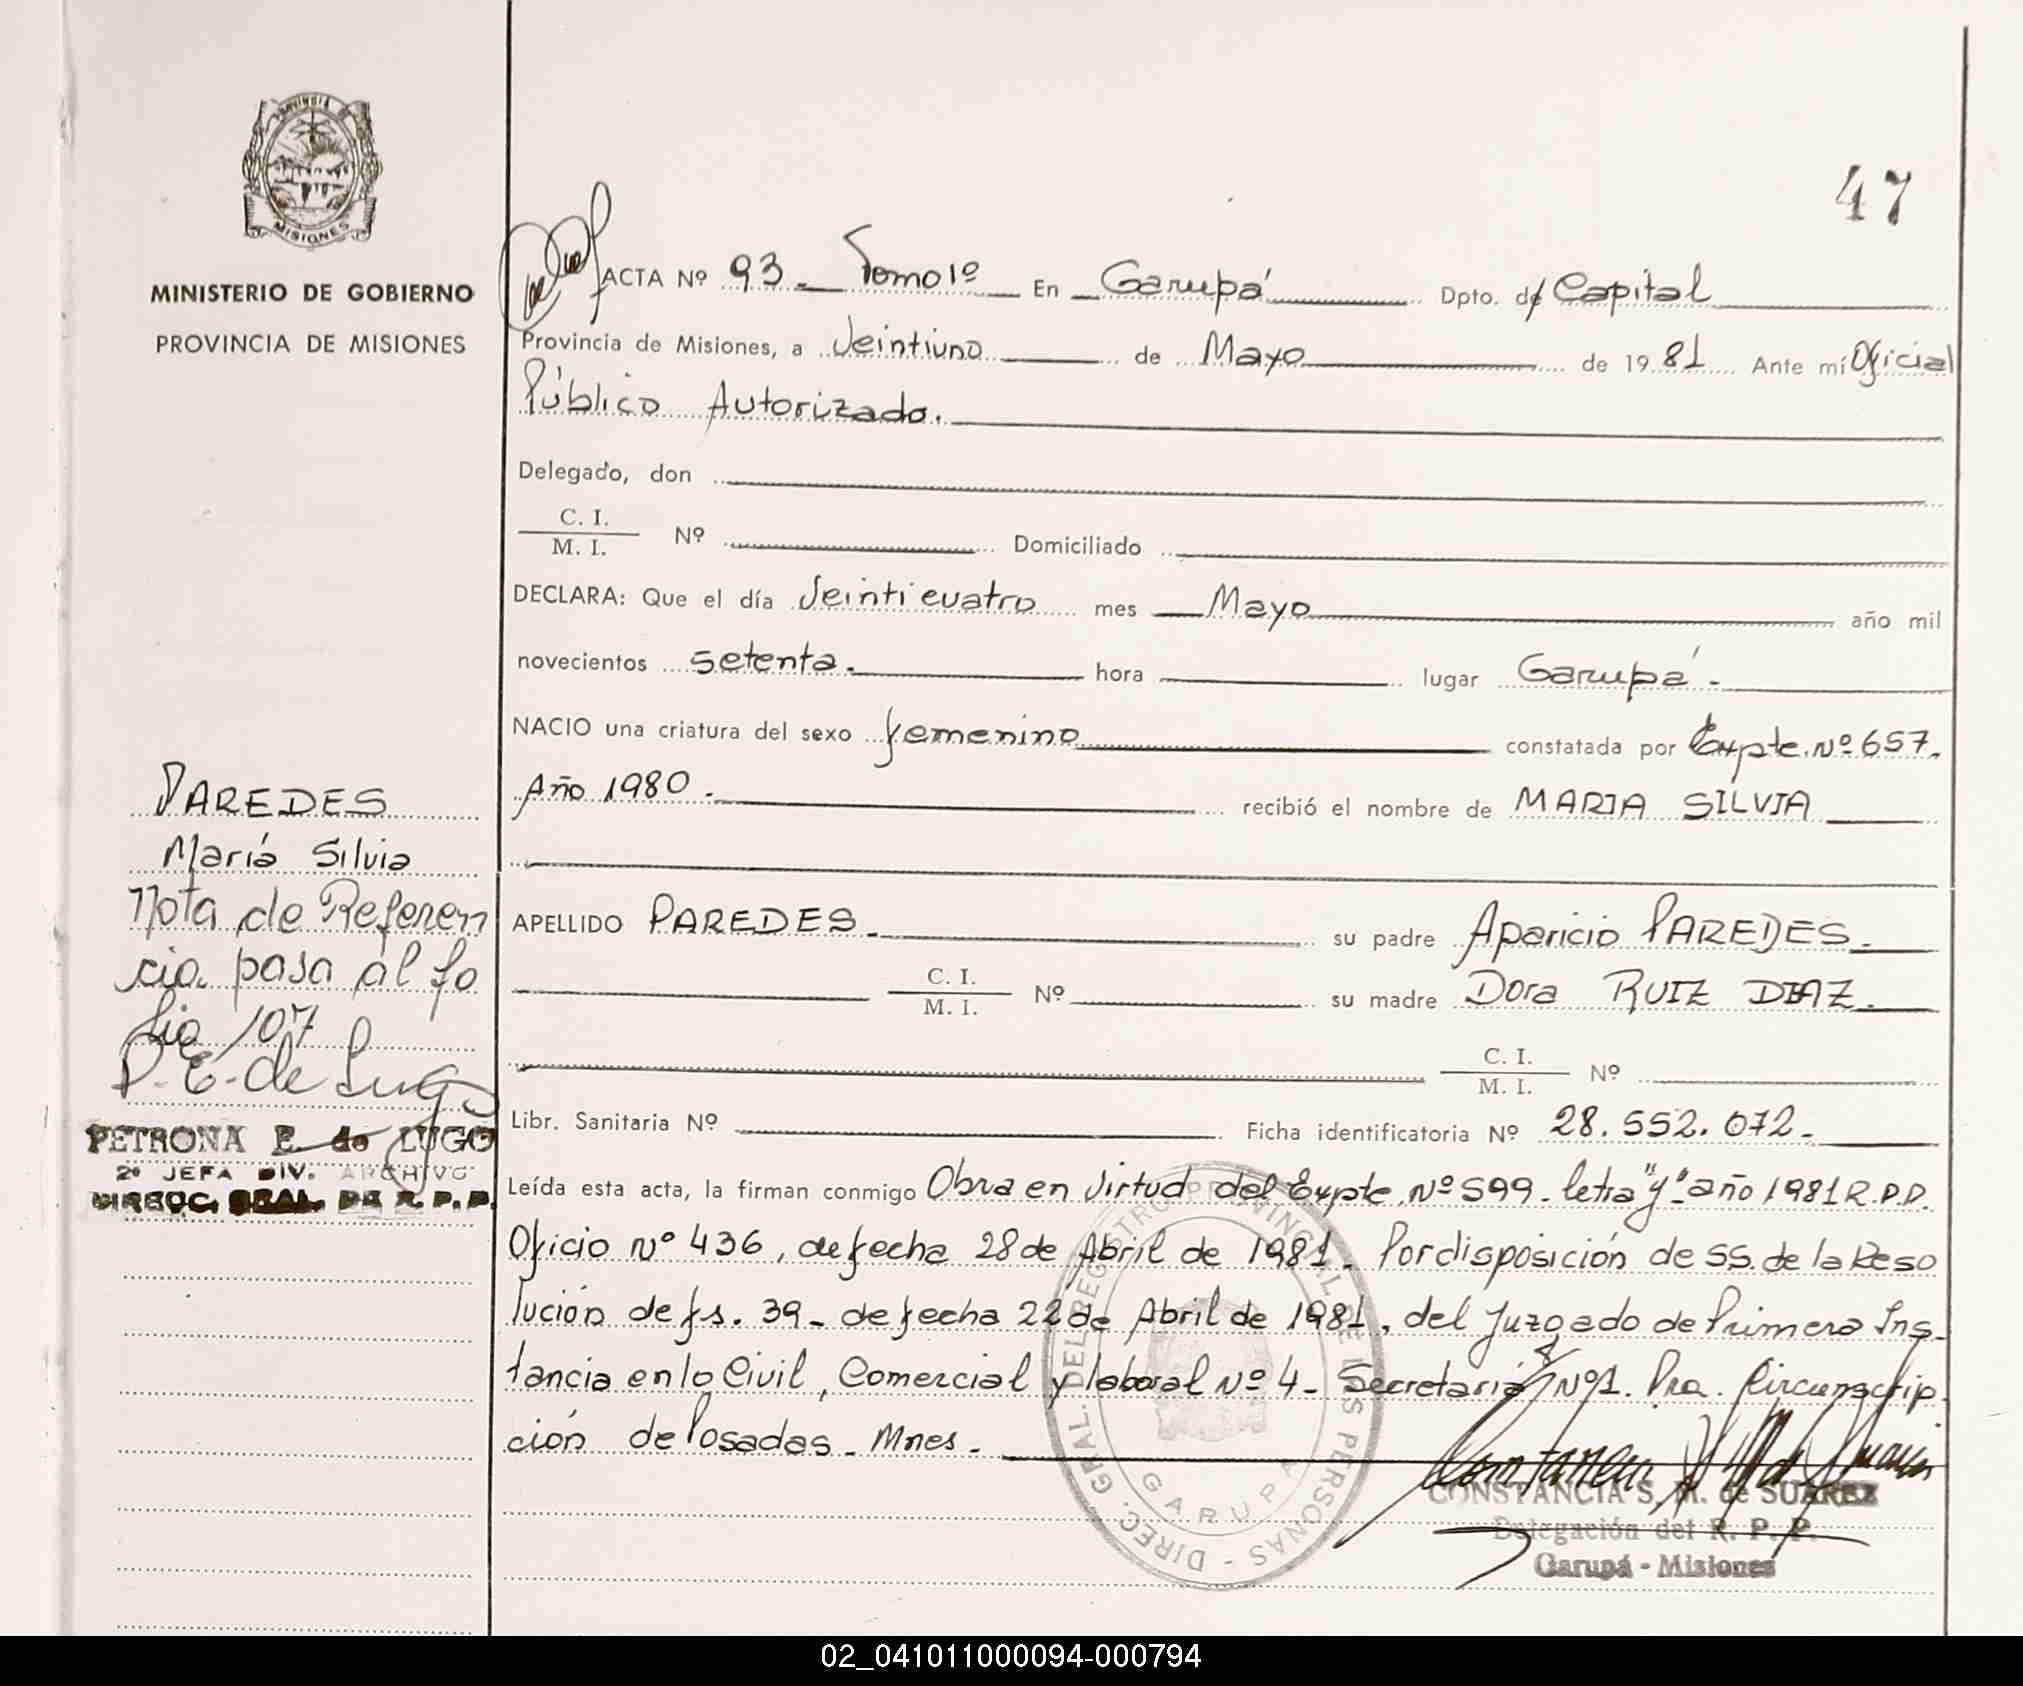 PROVINCIA DE
MISIONES
MINISTERIO DE GOBIERNO
PROVINCIA DE MISIONES
47
ACTA Nº 93. Tomo 1º En Garupá Dpto. de Capital
Provincia de Misiones, a Veintiuno de Mayo de 1981 Ante mí Oficial
Público Autorizado.
Delegado, don
C. I.
M. I. Nº Domiciliado
DECLARA: Que el día Veinticuatro mes Mayo año mil
novecientos setenta. hora lugar Garupá.
NACIO una criatura del sexo femenino constatada por Expte. Nº 657.
Año 1980. recibió el nombre de MARIA SILVIA
APELLIDO PAREDES. su padre Aparicio PAREDES.
C. I.
M. I. Nº su madre Dora RUIZ DIAZ.
C. I.
M. I. Nº
Libr. Sanitaria Nº Ficha identificatoria Nº 28.552.072.
Leída esta acta, la firman conmigo Obra en Virtud del Expte. Nº 599. letra "y" año 1981 R.P.P.
Oficio Nº 436, de fecha 28 de Abril de 1981. Por disposición de SS. de la Reso
lución de fs. 39 - de fecha 22 de Abril de 1981, del Juzgado de Primera Ins-
tancia en lo Civil, Comercial y laboral Nº 4 - Secretaria Nº 1. Pra. Circunscrip
ción de Posadas - Mnes.
PAREDES
María Silvia
Nota de Referen
cia pasa al fo
lio 107
P. E. de Lugo
PETRONA E. de LUGO
2º JEFA DIV. ARCHIVO
DIRECC. GRAL. DE R. P. P.
DIREC. GRAL. DEL REGISTRO PROVINCIAL DE LAS PERSONAS -
GARUPA
CONSTANCIA S. M. de SUAREZ
Delegación del R. P. P.
Garupá - Misiones
02_041011000094-000794